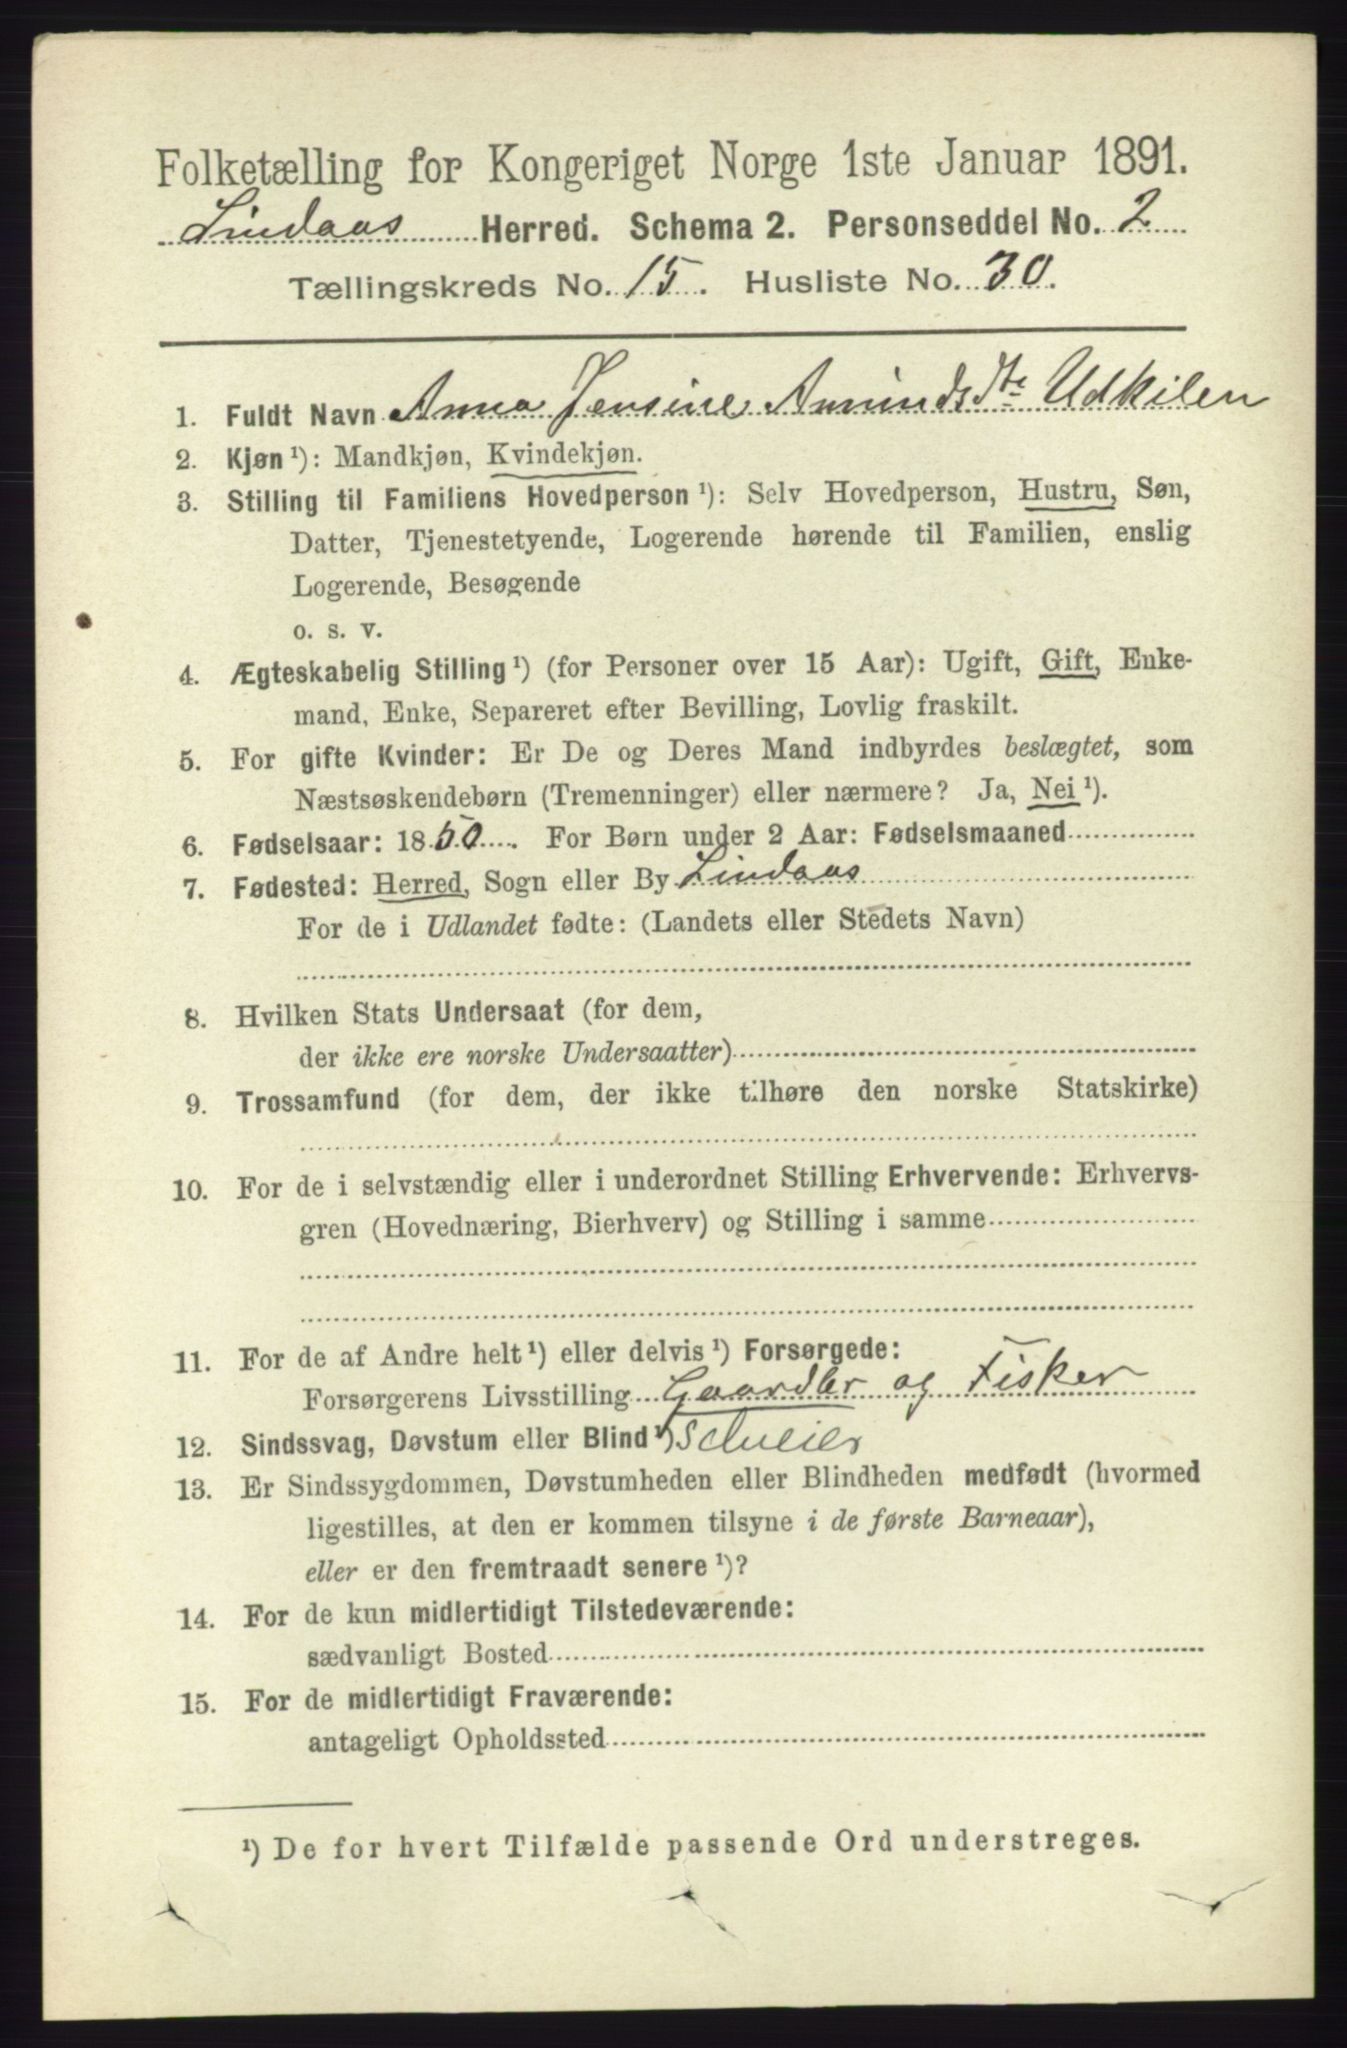 Folketælling for Kongeriget Norge 1ste Januar 1891.
Lindaas Herred. Schema 2. Personseddel No. 2
Tællingskreds No. 15. Husliste No. 30.
1. Fuldt Navn Anna Jensine Amundsdtr Udkilen
2. Kjøn ¹): Mandkjøn, Kvindekjøn.
3. Stilling til Familiens Hovedperson ¹): Selv Hovedperson, Hustru, Søn,
Datter, Tjenestetyende, Logerende hørende til Familien, enslig
Logerende, Besøgende
o. s. v.
4. Ægteskabelig Stilling ¹) (for Personer over 15 Aar): Ugift, Gift, Enke-
mand, Enke, Separeret efter Bevilling, Lovlig fraskilt.
5. For gifte Kvinder: Er De og Deres Mand indbyrdes beslægtet, som
Næstsøskendebørn (Tremenninger) eller nærmere? Ja, Nei ¹).
6. Fødselsaar: 1850. For Børn under 2 Aar: Fødselsmaaned
7. Fødested: Herred, Sogn eller By Lindaas
For de i Udlandet fødte: (Landets eller Stedets Navn)
8. Hvilken Stats Undersaat (for dem,
der ikke ere norske Undersaatter)
9. Trossamfund (for dem, der ikke tilhøre den norske Statskirke)
10. For de i selvstændig eller i underordnet Stilling Erhvervende: Erhvervs-
gren (Hovednæring, Bierhverv) og Stilling i samme
11. For de af Andre helt ¹) eller delvis ¹) Forsørgede:
Forsørgerens Livsstilling Gaardbr og Fisker
12. Sindssvag, Døvstum eller Blind ¹)
13. Er Sindssygdommen, Døvstumheden eller Blindheden medfødt (hvormed
ligestilles, at den er kommen tilsyne i de første Barneaar),
eller er den fremtraadt senere ¹)?
14. For de kun midlertidigt Tilstedeværende:
sædvanligt Bosted
15. For de midlertidigt Fraværende:
antageligt Opholdssted
¹) De for hvert Tilfælde passende Ord understreges.